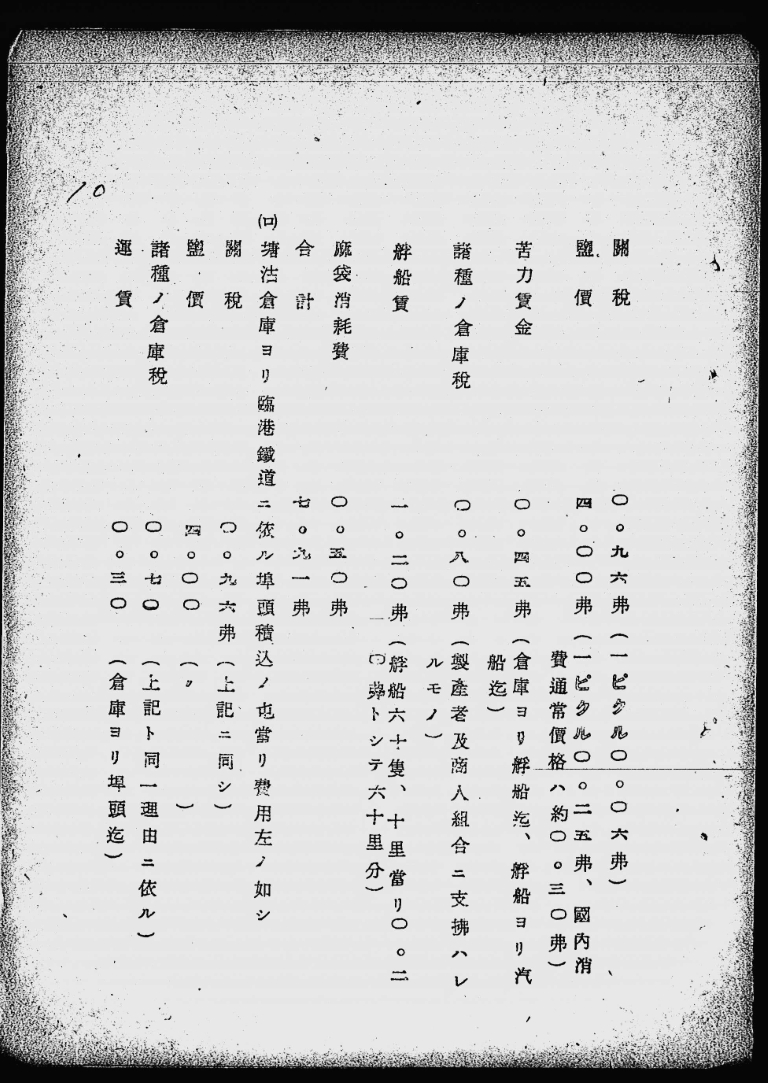 10
關稅　〇。九六弗（一ピクル〇。〇六弗）
鹽價　四。〇〇弗（一ピクル〇。二五弗、國內消
費通常價格ハ約〇。三〇弗）
苦力賃金　〇。四五弗（倉庫ヨリ艀船迄、艀船ヨリ汽
船迄）
諸種ノ倉庫稅　〇。八〇弗（製產者及商人組合ニ支拂ハレ
ルモノ）
艀船賃　一。二〇弗（艀船六十隻、十里當リ〇。二
〇弗トシテ六十里分）
麻袋消耗費　〇。五〇弗
合計　七。九一弗
(ロ)塘沽倉庫ヨリ臨港鐵道ニ依ル埠頭積込ノ屯當リ費用左ノ如シ
關稅　〇。九六弗（上記ニ同シ）
鹽價　四。〇〇（〃）
諸種ノ倉庫稅　〇。七〇（上記ト同一理由ニ依ル）
運賃　〇。三〇（倉庫ヨリ埠頭迄）